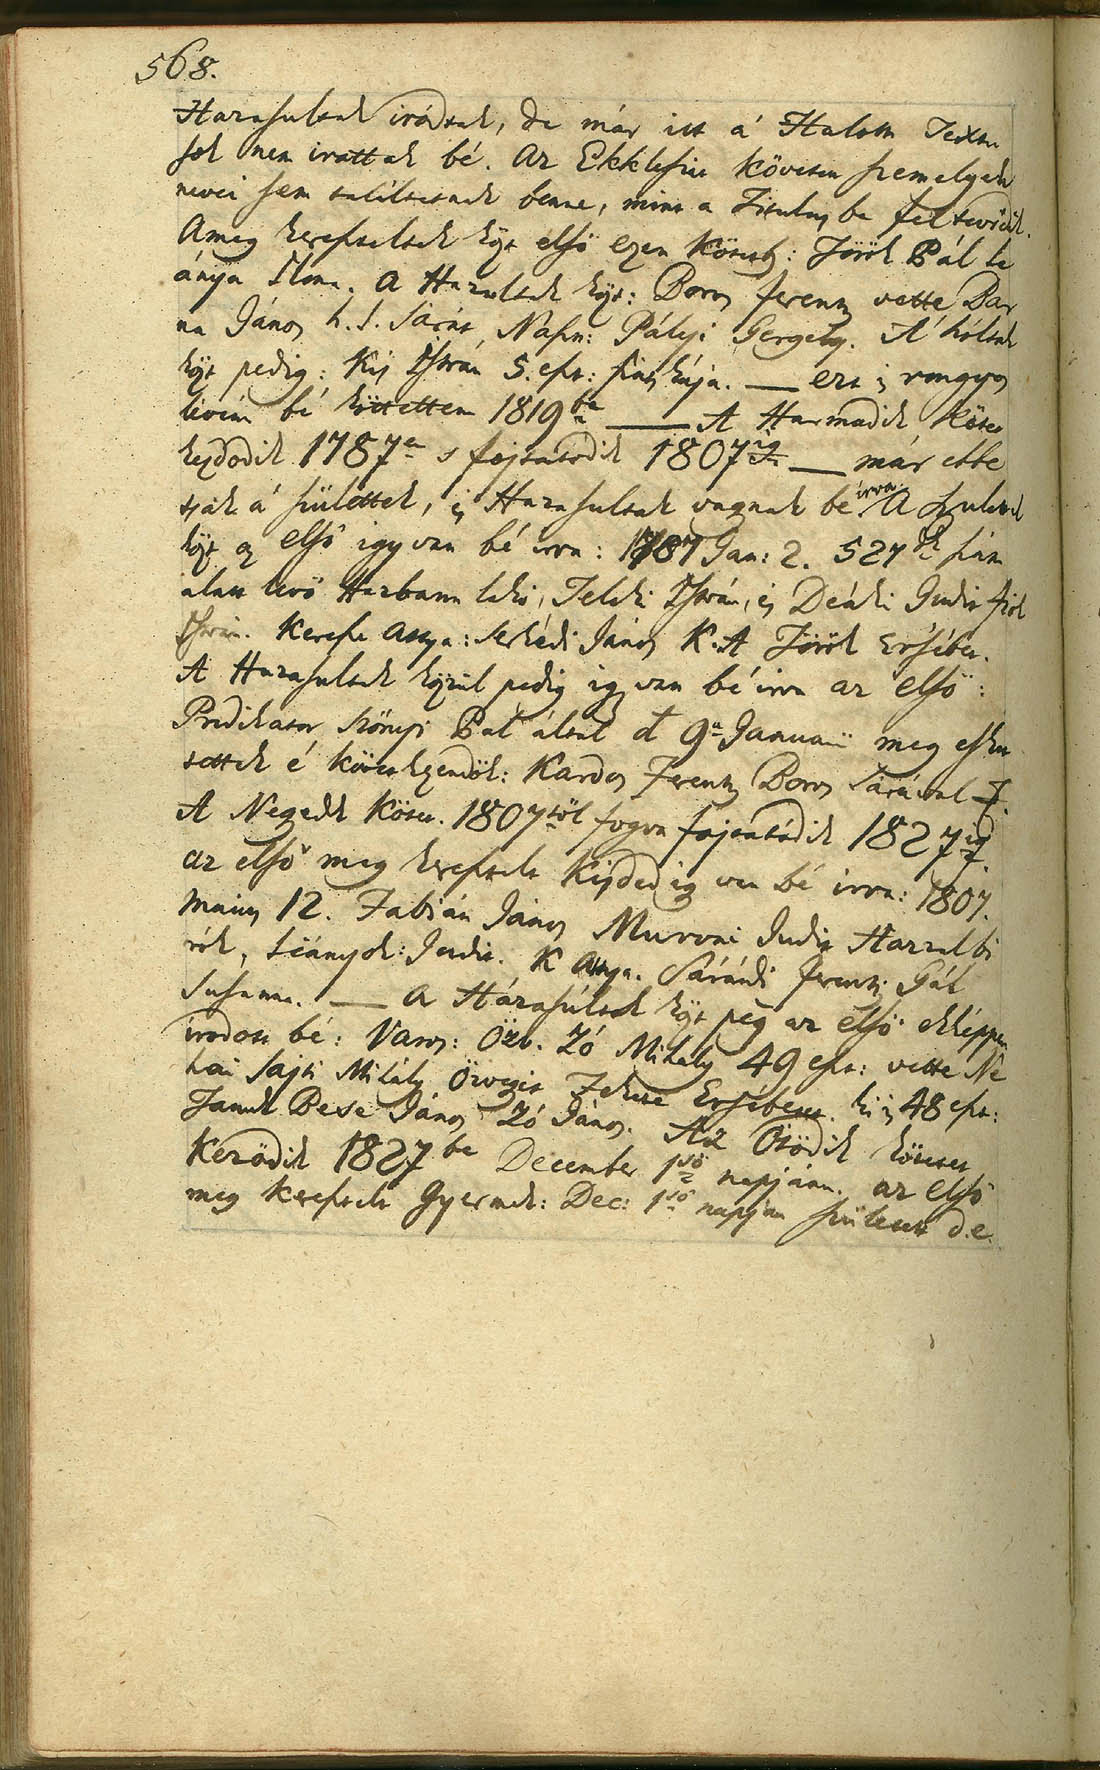 568.
Házasultak iródtak, de már itt á Halotti Textu
sok nem irattak bé. Az Ekklésia Követsn személyek
nevei sem találtatnak benne, mint a Titulusba fel tevődik.
A meg kereszteltek közt első ezen Kötetb: Török Pál le
ánya Ilona. A Házasultak közt: Boros Ferentz vette Bar
na János h. l. Sárát, Násn: Pályi Gergely. A' hóltak
közt pedig: Kis István 5. eszt: fiatskája. — ezt is rongyos
lévén bé köttettem 1819be — A Harmadik Kötet
kezdődik 1787en s fojtatódik 1807ig — már ebbe
tsak á születtek, és Házasultak vagynak bé irva. A Szülöttek
közt az első igy van bé irva: 1787 Jan: 2. 527dik szám
alatt levő Teleki Istvan, és Deáki Judit fiok
Istvan. Kereszt Attya: Serkedi János K. A Török Ersébet.
A Házasultak közzül pedig igy van bé irva az első:
Prédikátor Szőnyi Pál által d 9a Januarii meg eskü
tettek é következendők: Kardos Ferentz Boros Sárával
A Negedik Kötet. 1807től fogva fojtatódik 1827ig
az első meg keresztelt Kisded ig van bé irva: 1807.
Maius 12. Fabián János Muroni Judit Házasbé
rók, Leányok: Judit. K Attya. Sárándi Ferentz Gál
Susánna. — A Házasúltak közt peg az első ekképpen
irodott bé: Varos: Özv. Zó Mihály 49 eszt: vette Né
hai Sajti Mihály Özvegyit Fekete Ersébetet. ki is 48 eszt:
Tanuk Bese János Zó János. Az Ötödik kötetet
Kezödik 1827be December 1ső napjánn. az első
meg keresztelt Gyermek: Dec: 1ső napján született d.e.